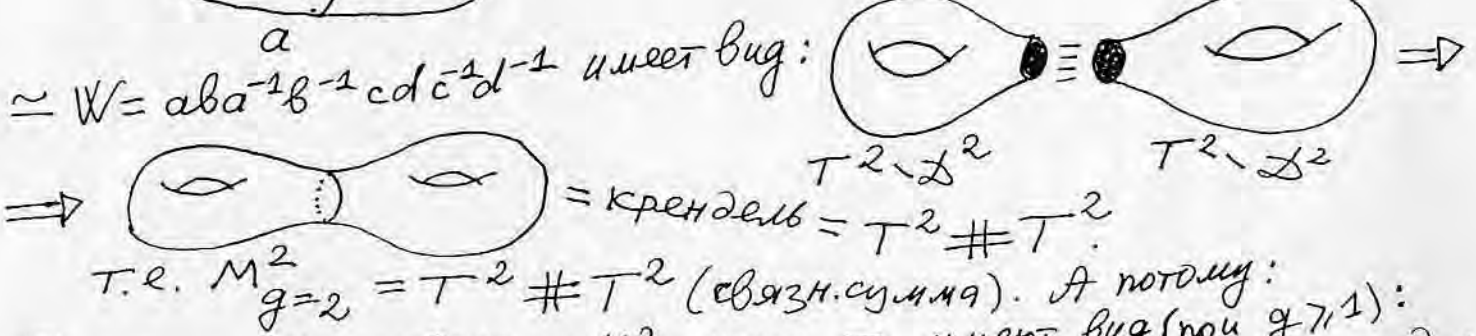 a
≃ W = aba⁻¹b⁻¹cdc⁻¹d⁻¹ имеет вид: ⇒
T² \ D² T² \ D²
⇒ = крендель = T² # T².
Т.е. M²_{g=2} = T² # T² (связн. сумма). А потому:
вид (при g ⩾ 1):